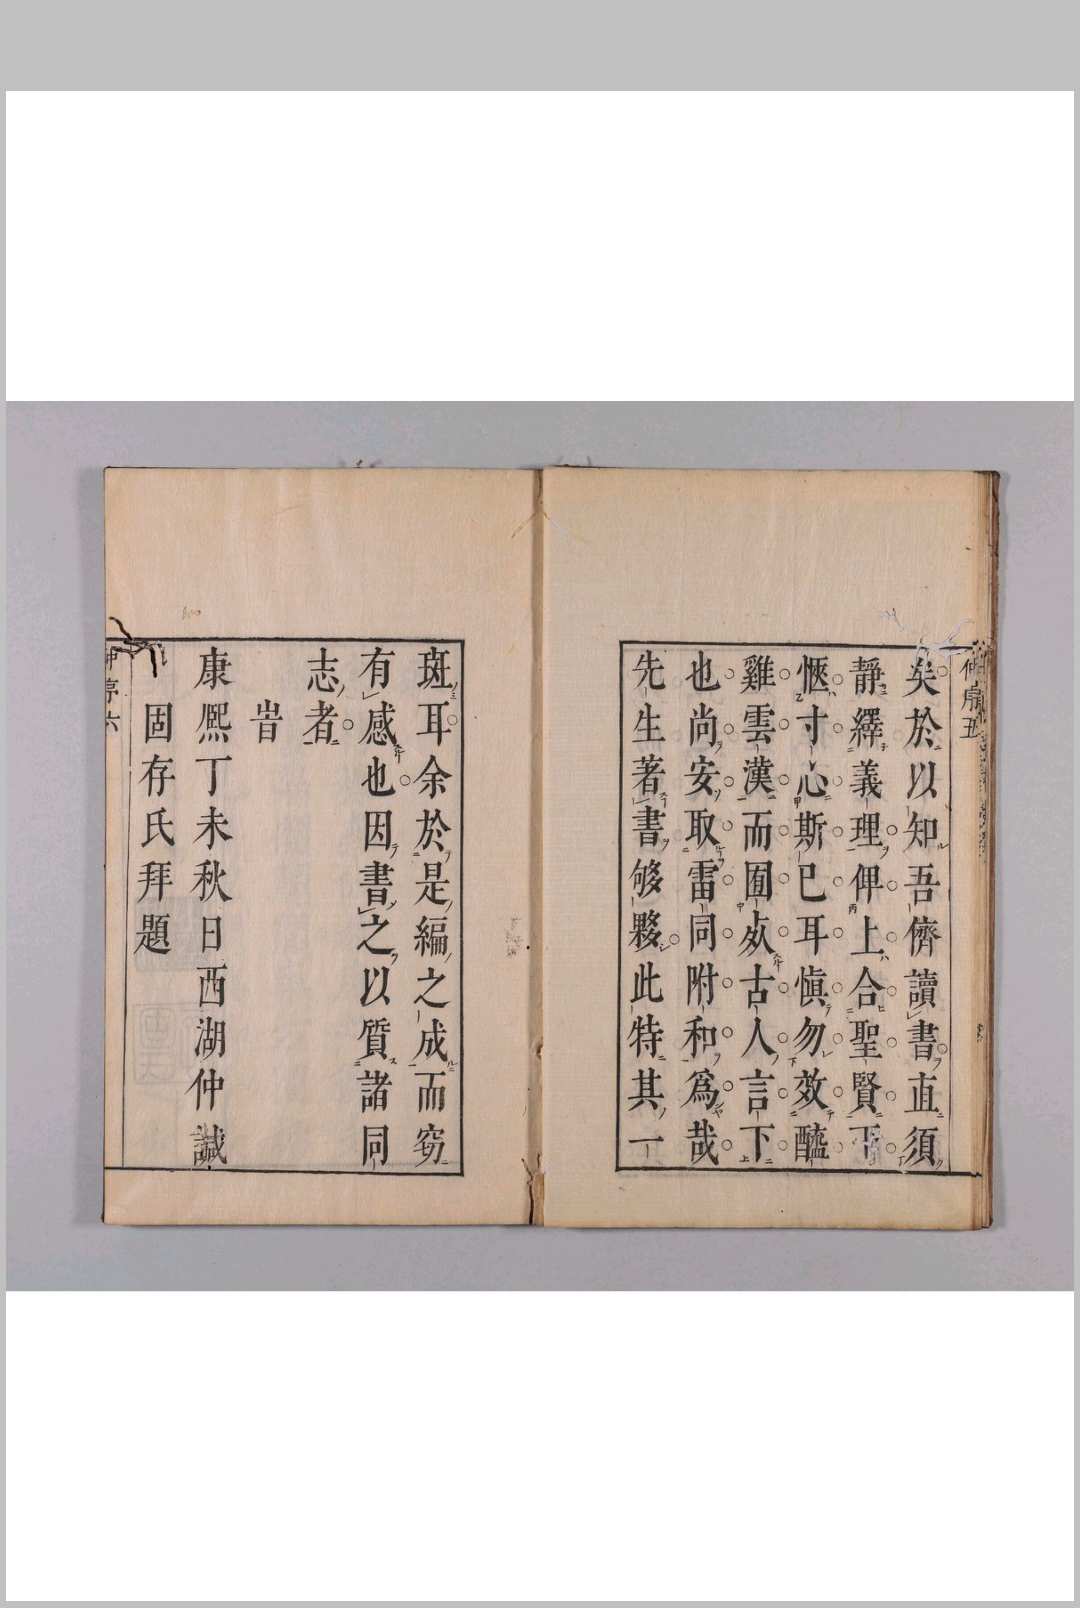 矣於以知吾儕讀書直須
靜繹義理俾上合聖賢下
愜寸心斯已耳愼勿效醯
雞雲漢而囿于古人言下
也尚安取雷同附和爲哉
先生著書够夥此特其一
斑耳余於是編之成而窃
有感也因書之以質諸同
志者
旹
康熈丁未秋日西湖仲諴
固存氏拜題